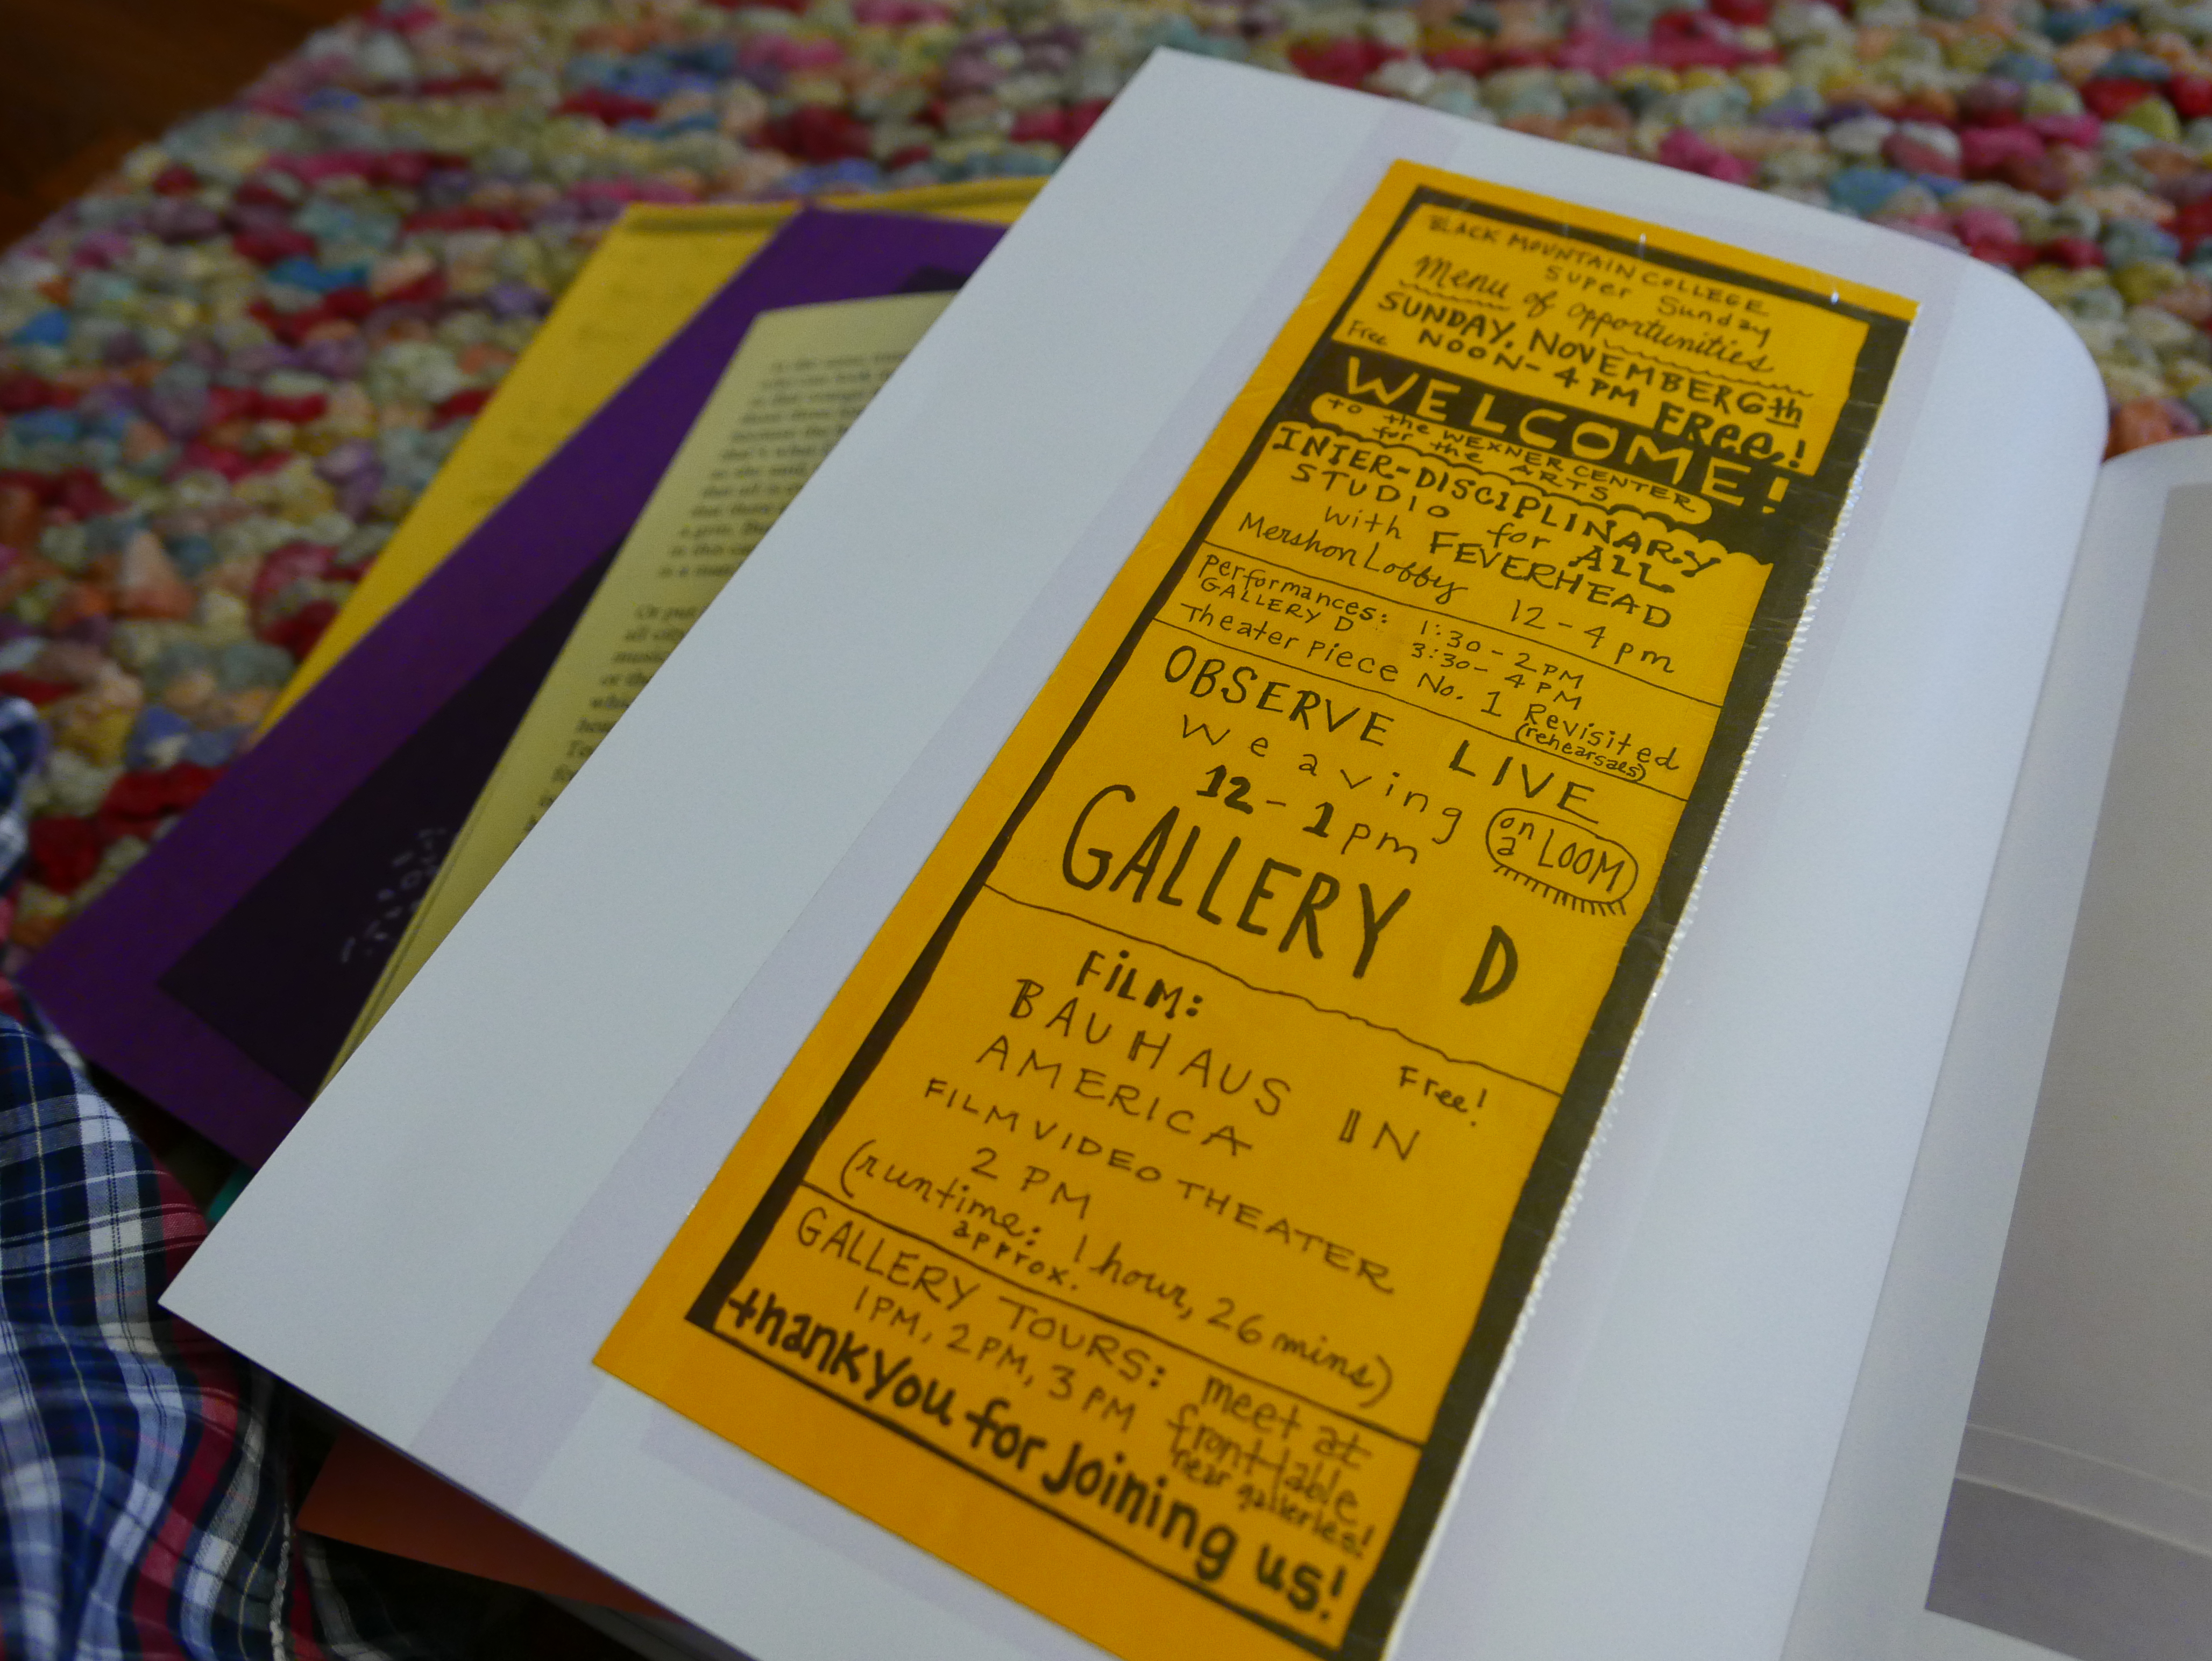 BLACK MOUNTAIN COLLEGE
Super Sunday
Menu of opportunities
SUNDAY, NOVEMBER 6th
Free NOON - 4 PM FREE!
WELCOME!
to the WEXNER CENTER
for the ARTS
INTER-DISCIPLINARY
STUDIO for ALL
with FEVERHEAD
Mershon Lobby 12-4 pm
Performances: 1:30-2PM
GALLERY D 3:30-4PM
Theater Piece No. 1 Revisited
(rehearsals)
OBSERVE LIVE
weaving on a LOOM
12-1pm
GALLERY D
FILM: Free!
BAUHAUS IN
AMERICA
FILM VIDEO THEATER
2 PM
(runtime: 1 hour, 26 mins)
approx.
GALLERY TOURS: meet at
1PM, 2PM, 3PM front table
near galleries!
thank you for joining us!